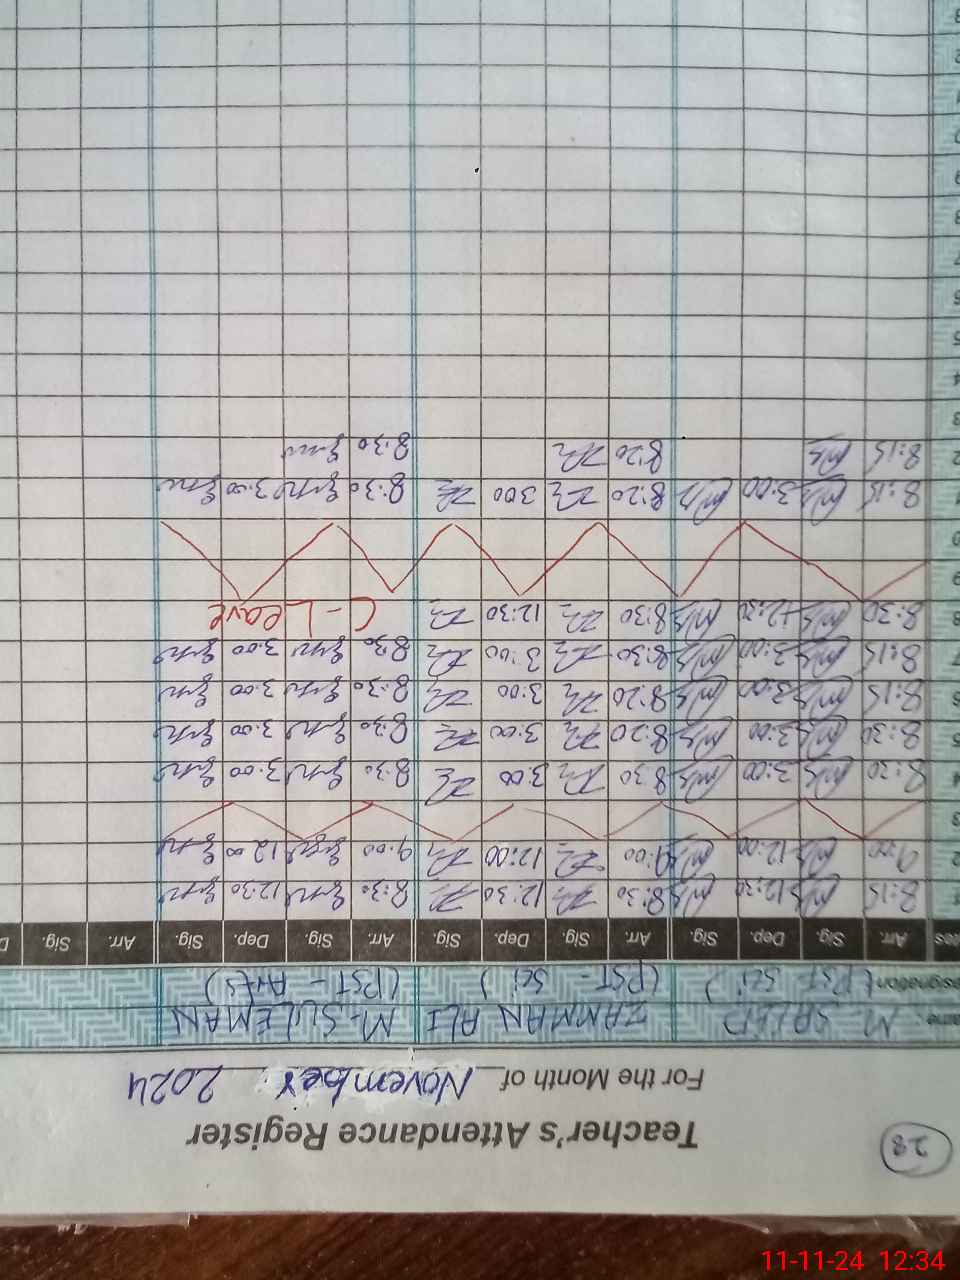 28
Teacher's Attendance Register
For the Month of November 2024
ame M. ZAMMAN ALI M. SULEMAN
esignation (PST Sci) (PST - Sci) (PST - Arts)
tes Arr. Sig. Dep. Sig. Arr. Sig. Dep. Sig. Arr. Sig. Dep. Sig. Arr. Sig. D
1 8:15 12:30 8:30 12:30 8:30 12:30
2 9:00 12:00 9:00 12:00 9.00 12.00
3
4 8:30 3:00 8:30 3:00 8:30 3.00
5 8:30 3:00 8:20 3:00 8:30 3.00
6 8:15 3:00 8:20 3:00 8:30 3.00
7 8:15 3:00 8:30 3:00 8:30 3.00
8 8:30 12:30 8:30 12:30 C-Leave
9
0
1 8:15 3:00 8:20 3:00 8:30 3.00
2 8:15 8:20 8:30
3
4
5
6
7
8
9
0
1
2
3
11-11-24 12:34